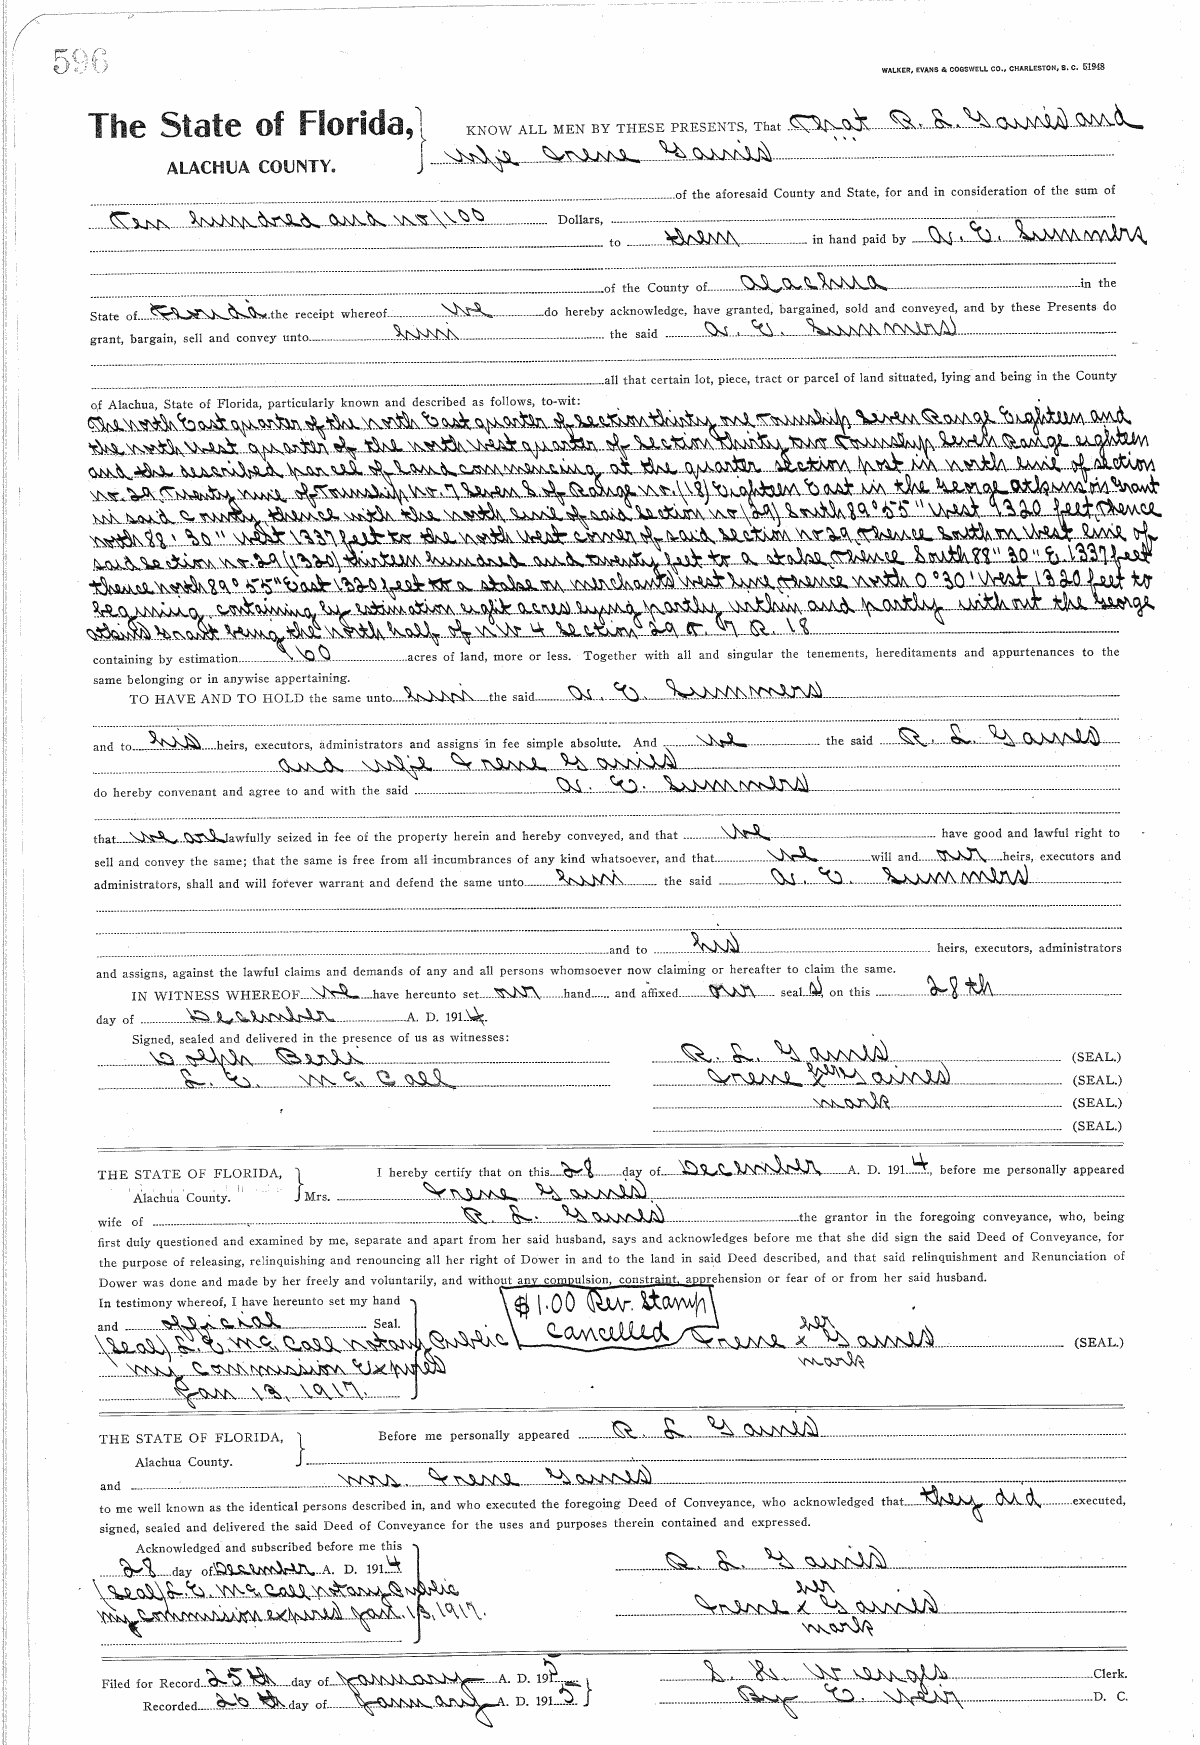 596
WALKER, EVANS & COGSWELL CO., CHARLESTON, S. C. 51948
The State of Florida, KNOW ALL MEN BY THESE PRESENTS, That That R. L. Gaines and
ALACHUA COUNTY. wife Irene Gaines
of the aforesaid County and State, for and in consideration of the sum of
Ten hundred and no/100 Dollars,
to them in hand paid by A. E. Summers
of the County of Alachua in the
State of Florida the receipt whereof we do hereby acknowledge, have granted, bargained, sold and conveyed, and by these Presents do
grant, bargain, sell and convey unto him the said A. E. Summers
all that certain lot, piece, tract or parcel of land situated, lying and being in the County
of Alachua, State of Florida, particularly known and described as follows, to-wit:
The north East quarter of the north East quarter of section thirty one Township Seven Range Eighteen and
the north West quarter of the north west quarter of Section Thirty two Township Seven Range eighteen
and the described parcel of land commencing at the quarter section post in north line of section
no. 29 Twenty nine of Township no. 7 Seven S. of Range no. (18) Eighteen East in the George Atkinson Grant
in said County, thence with the north line of said Section no (29) South 89° 55" West 1320 feet, Thence
north 88° 30" West 1337 feet to the north West corner of said section no 29, Thence South on West line of
said Section no. 29 (1320) thirteen hundred and twenty feet to a stake, Thence South 88" 30" E. 1337 feet
thence north 89° 55" East 1320 feet to a stake on merchants west line, thence north 0° 30' West 1320 feet to
begining, containing by estimation eight acres lying partly within and partly without the George
Atkins Grant being the north half of NW 4 Section 29 T. 7 R. 18
containing by estimation 160 acres of land, more or less. Together with all and singular the tenements, hereditaments and appurtenances to the
same belonging or in anywise appertaining.
TO HAVE AND TO HOLD the same unto him the said A. E. Summers
and to his heirs, executors, administrators and assigns in fee simple absolute. And we the said R. L. Gaines
and wife Irene Gaines
do hereby convenant and agree to and with the said A. E. Summers
that we are lawfully seized in fee of the property herein and hereby conveyed, and that we have good and lawful right to
sell and convey the same; that the same is free from all incumbrances of any kind whatsoever, and that we will and our heirs, executors and
administrators, shall and will forever warrant and defend the same unto him the said A. E. Summers
and to his heirs, executors, administrators
and assigns, against the lawful claims and demands of any and all persons whomsoever now claiming or hereafter to claim the same.
IN WITNESS WHEREOF we have hereunto set our hand and affixed our seal s on this 28th
day of December A. D. 1914.
Signed, sealed and delivered in the presence of us as witnesses:
Dolph Berli R. L. Gaines (SEAL.)
L. E. McCall Irene her Gaines (SEAL.)
mark (SEAL.)
(SEAL.)
THE STATE OF FLORIDA, I hereby certify that on this 28 day of December A. D. 1914, before me personally appeared
Alachua County. Mrs. Irene Gaines
wife of R. L. Gaines the grantor in the foregoing conveyance, who, being
first duly questioned and examined by me, separate and apart from her said husband, says and acknowledges before me that she did sign the said Deed of Conveyance, for
the purpose of releasing, relinquishing and renouncing all her right of Dower in and to the land in said Deed described, and that said relinquishment and Renunciation of
Dower was done and made by her freely and voluntarily, and without any compulsion, constraint, apprehension or fear of or from her said husband.
In testimony whereof, I have hereunto set my hand $1.00 Rev. Stamp
and official Seal. her
(Seal) L. E. McCall notary Public Cancelled Irene x Gaines (SEAL.)
my commission Expires mark
Jan 13, 1917.
THE STATE OF FLORIDA, Before me personally appeared R. L. Gaines
Alachua County.
and mrs. Irene Gaines
to me well known as the identical persons described in, and who executed the foregoing Deed of Conveyance, who acknowledged that they did executed,
signed, sealed and delivered the said Deed of Conveyance for the uses and purposes therein contained and expressed.
Acknowledged and subscribed before me this
28 day of December A. D. 1914 R. L. Gaines
(Seal) L. E. McCall notary Public her
my Commission expires Jan. 13, 1917. Irene x Gaines
mark
Filed for Record 25th day of January A. D. 1915 S. H. Wienges Clerk.
Recorded 26th day of January A. D. 1915. By E. Weir D. C.